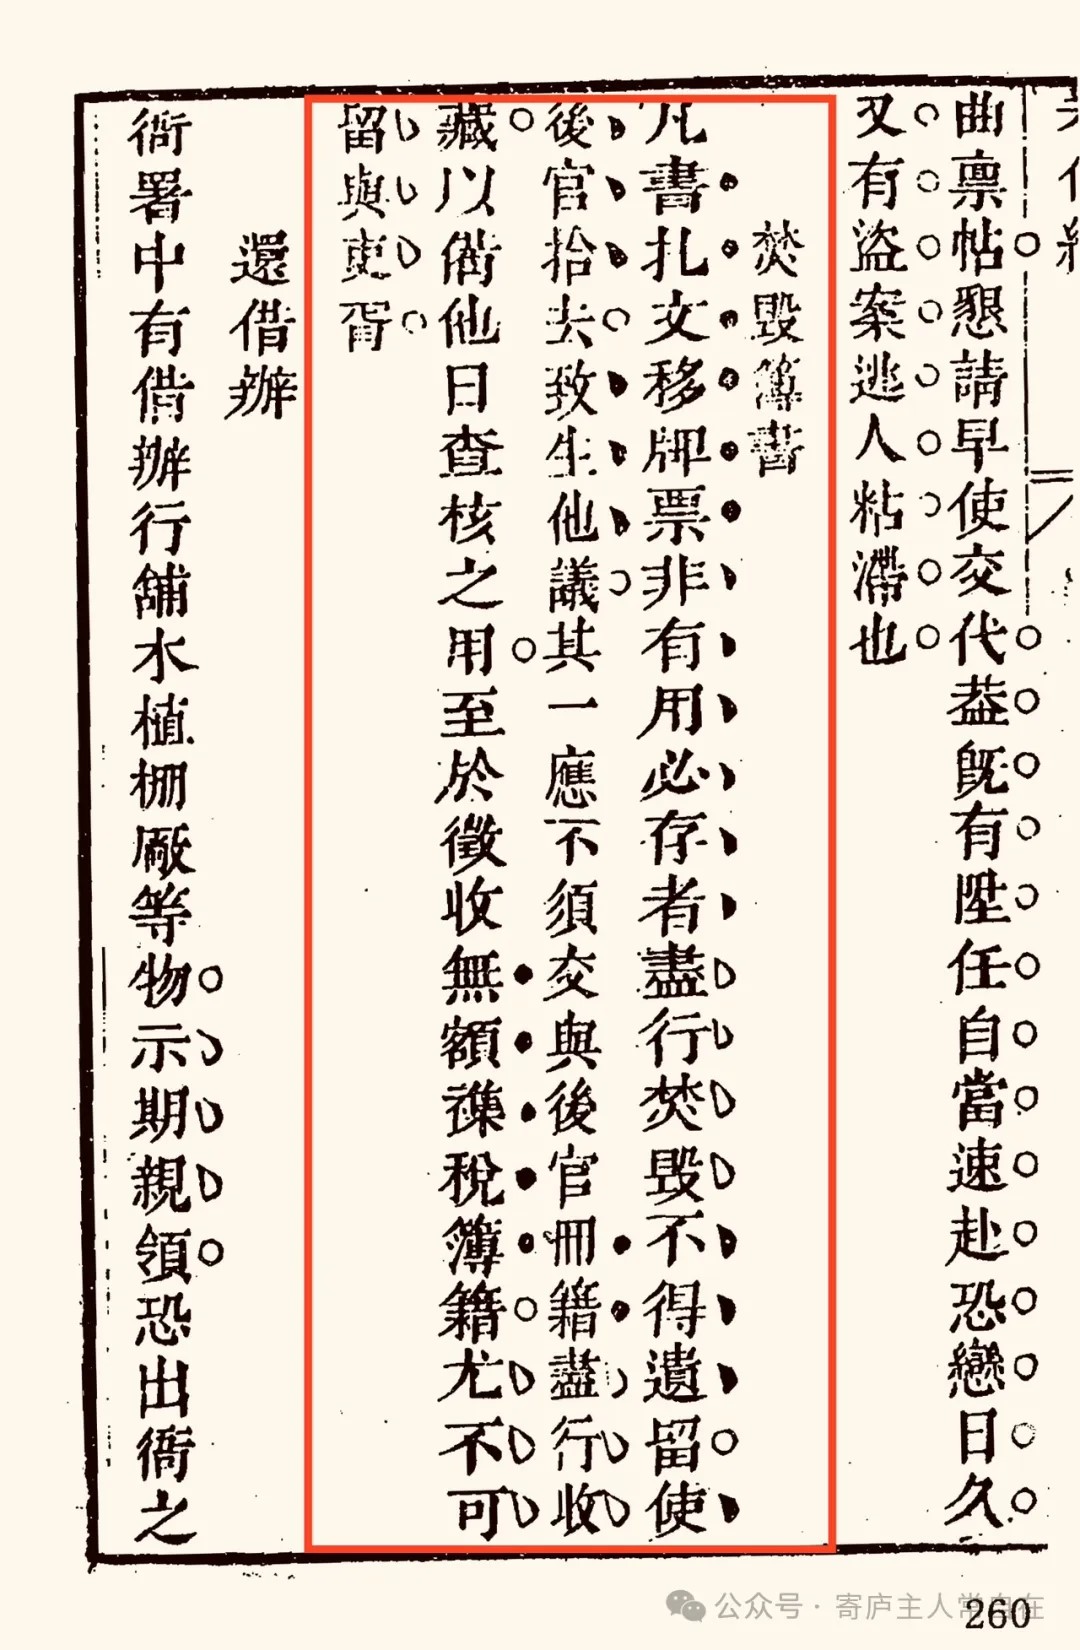 曲禀帖懇請早使交代葢既有陞任自當速赴恐戀日久
又有盜案逃人粘滯也
焚毀簿書
凡書扎文移牌票非有用必存者盡行焚毀不得遺留使
後官拾去致生他議其一應不須交與後官冊籍盡行收
藏以俻他日查核之用至於徵收無額襍稅簿籍尤不可
留與吏胥
還借辦
衙署中有借辦行舖水植棚廠等物示期親領恐出衙之
公众号·寄庐主人常自在
260